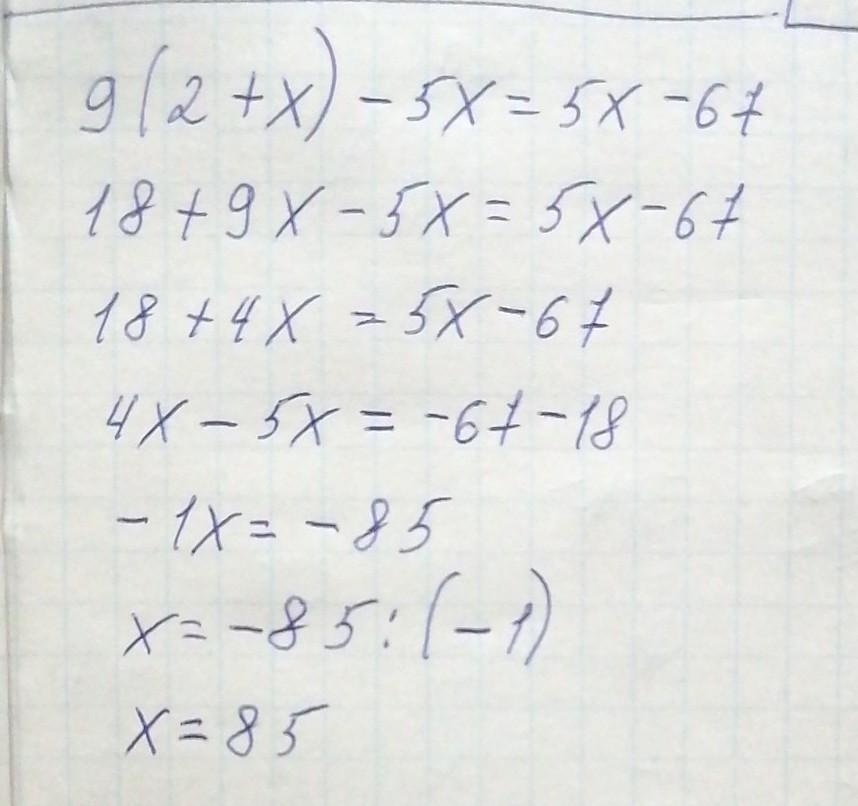 9(2+x)-5x=5x-67
18+9x-5x=5x-67
18+4x=5x-67
4x-5x=-67-18
-1x=-85
x=-85:(-1)
x=85